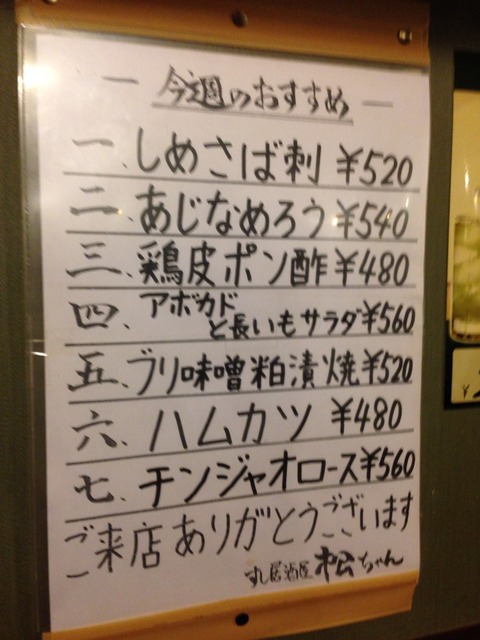 一 今週のおすすめ 一
一、しめさば刺 ¥520
二、あじなめろう ¥540
三、鶏皮ポン酢 ¥480
四、アボカドと長いもサラダ ¥560
五、ブリ味噌粕漬焼 ¥520
六、ハムカツ ¥480
七、チンジャオロース ¥560
ご来店ありがとうございます
居酒屋 松ちゃん